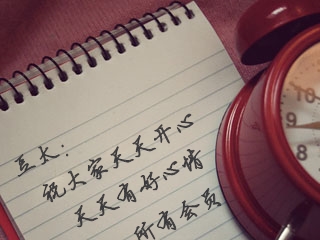 太：
祝大家天天开心
天天有好心情
所有会员
10
9
8